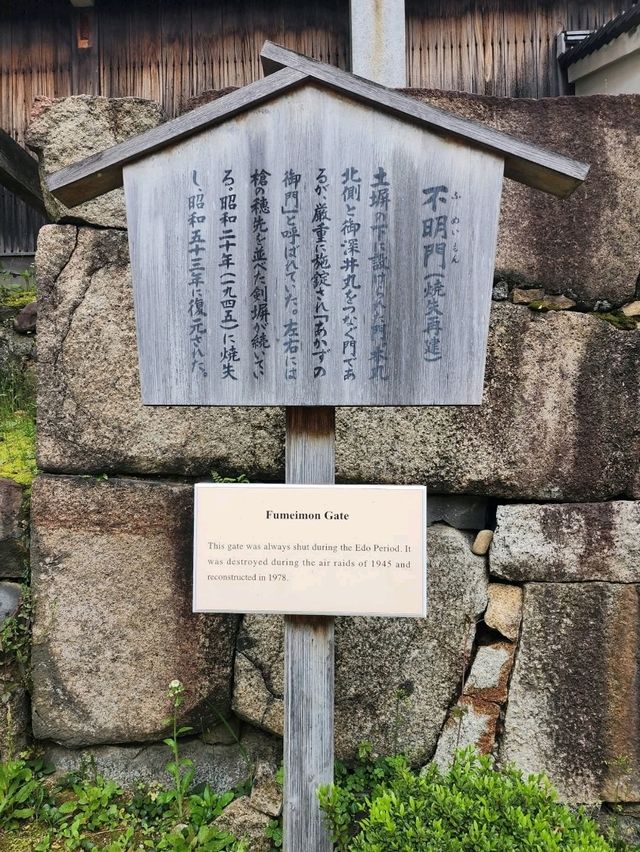 不明門(焼失再建)
ふめいもん
土塀の下に設けられた門。本丸
北側と御深井丸をつなぐ門であ
るが、厳重に施錠され「あかずの
御門」と呼ばれていた。左右には
槍の穂先を並べた剣塀が続いてい
る。昭和二十年(一九四五)に焼失
し、昭和五十三年に復元された。
Fumeimon Gate
This gate was always shut during the Edo Period. It
was destroyed during the air raids of 1945 and
reconstructed in 1978.